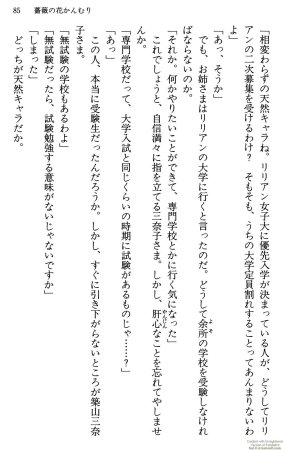 85　薔薇の花かんむり
「相変わらずの天然キャラね。リリアン女子大に優先入学が決まっている人が、どうしてリリ
アンの二次募集を受けるわけ？　そもそも、うちの大学定員割れすることってあんまりないわ
よ」
「あっ、そうか」
でも、お姉さまはリリアンの大学に行くと言ったのだ。どうして余所の学校を受験しなけれ
ばならないのか。
「それか。何かやりたいことができて、専門学校とかに行く気になった」
これでしょうと、自信満々に指を立てる三奈子さま。しかし、肝心なことを忘れてやしませ
んか。
「専門学校だって、大学入試と同じくらいの時期に試験があるものじゃ……？」
「あっ」
この人、本当に受験生だったんだろうか。しかし、すぐに引き下がらないところが築山三奈
子さま。
「無試験の学校もあるわよ」
「無試験だったら、試験勉強する意味がないじゃないですか」
「しまった」
どっちが天然キャラだか。